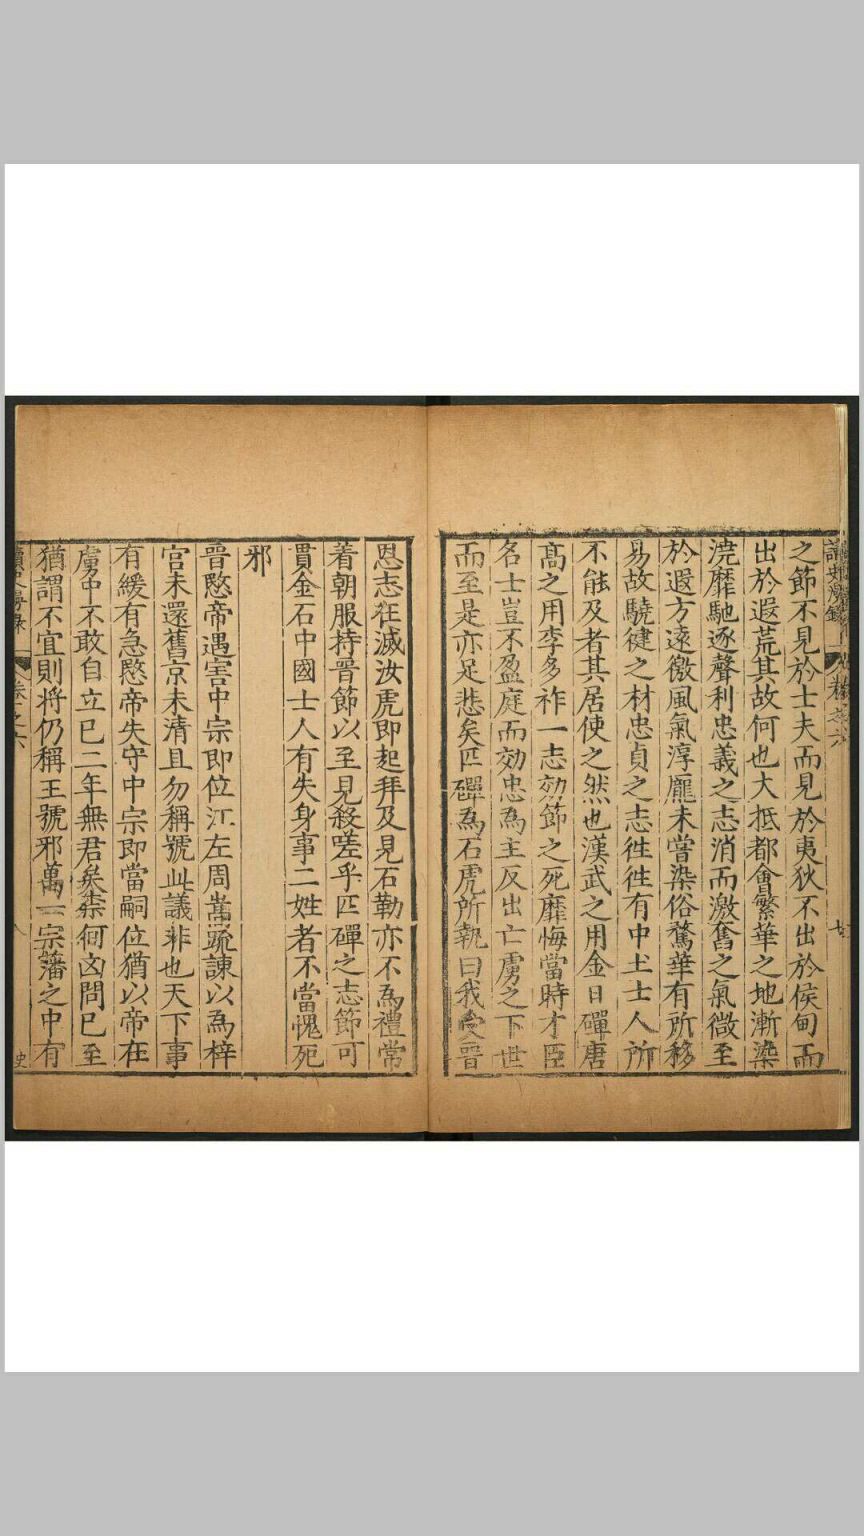 之節不見於士夫而見於夷狄不出於侯甸而
出於遐荒其故何也大抵都會繁華之地漸染
澆靡馳逐聲利忠義之志消而激奮之氣微至
於遐方遠徼風氣淳龐未嘗染俗騖華有所移
易故驍健之材忠貞之志徃徃有中土士人所
不能及者其居使之然也漢武之用金日磾唐
高之用李多祚一志効節之死靡悔當時才臣
名士豈不盈庭而効忠為主反出亡虜之下世
而至是亦足悲矣匹磾為石虎所執曰我受晉
恩志在滅汝虎即起拜及見石勒亦不為禮常
着朝服持晉節以至見殺嗟乎匹磾之志節可
貫金石中國士人有失身事二姓者不當愧死
邪
晉愍帝遇害中宗即位江左周嵩疏諫以為梓
宮未還舊京未清且勿稱號此議非也天下事
有緩有急愍帝失守中宗即當嗣位猶以帝在
虜中不敢自立已二年無君矣柰何凶問已至
猶謂不宜則將仍稱王號邪萬一宗藩之中有
卷之六